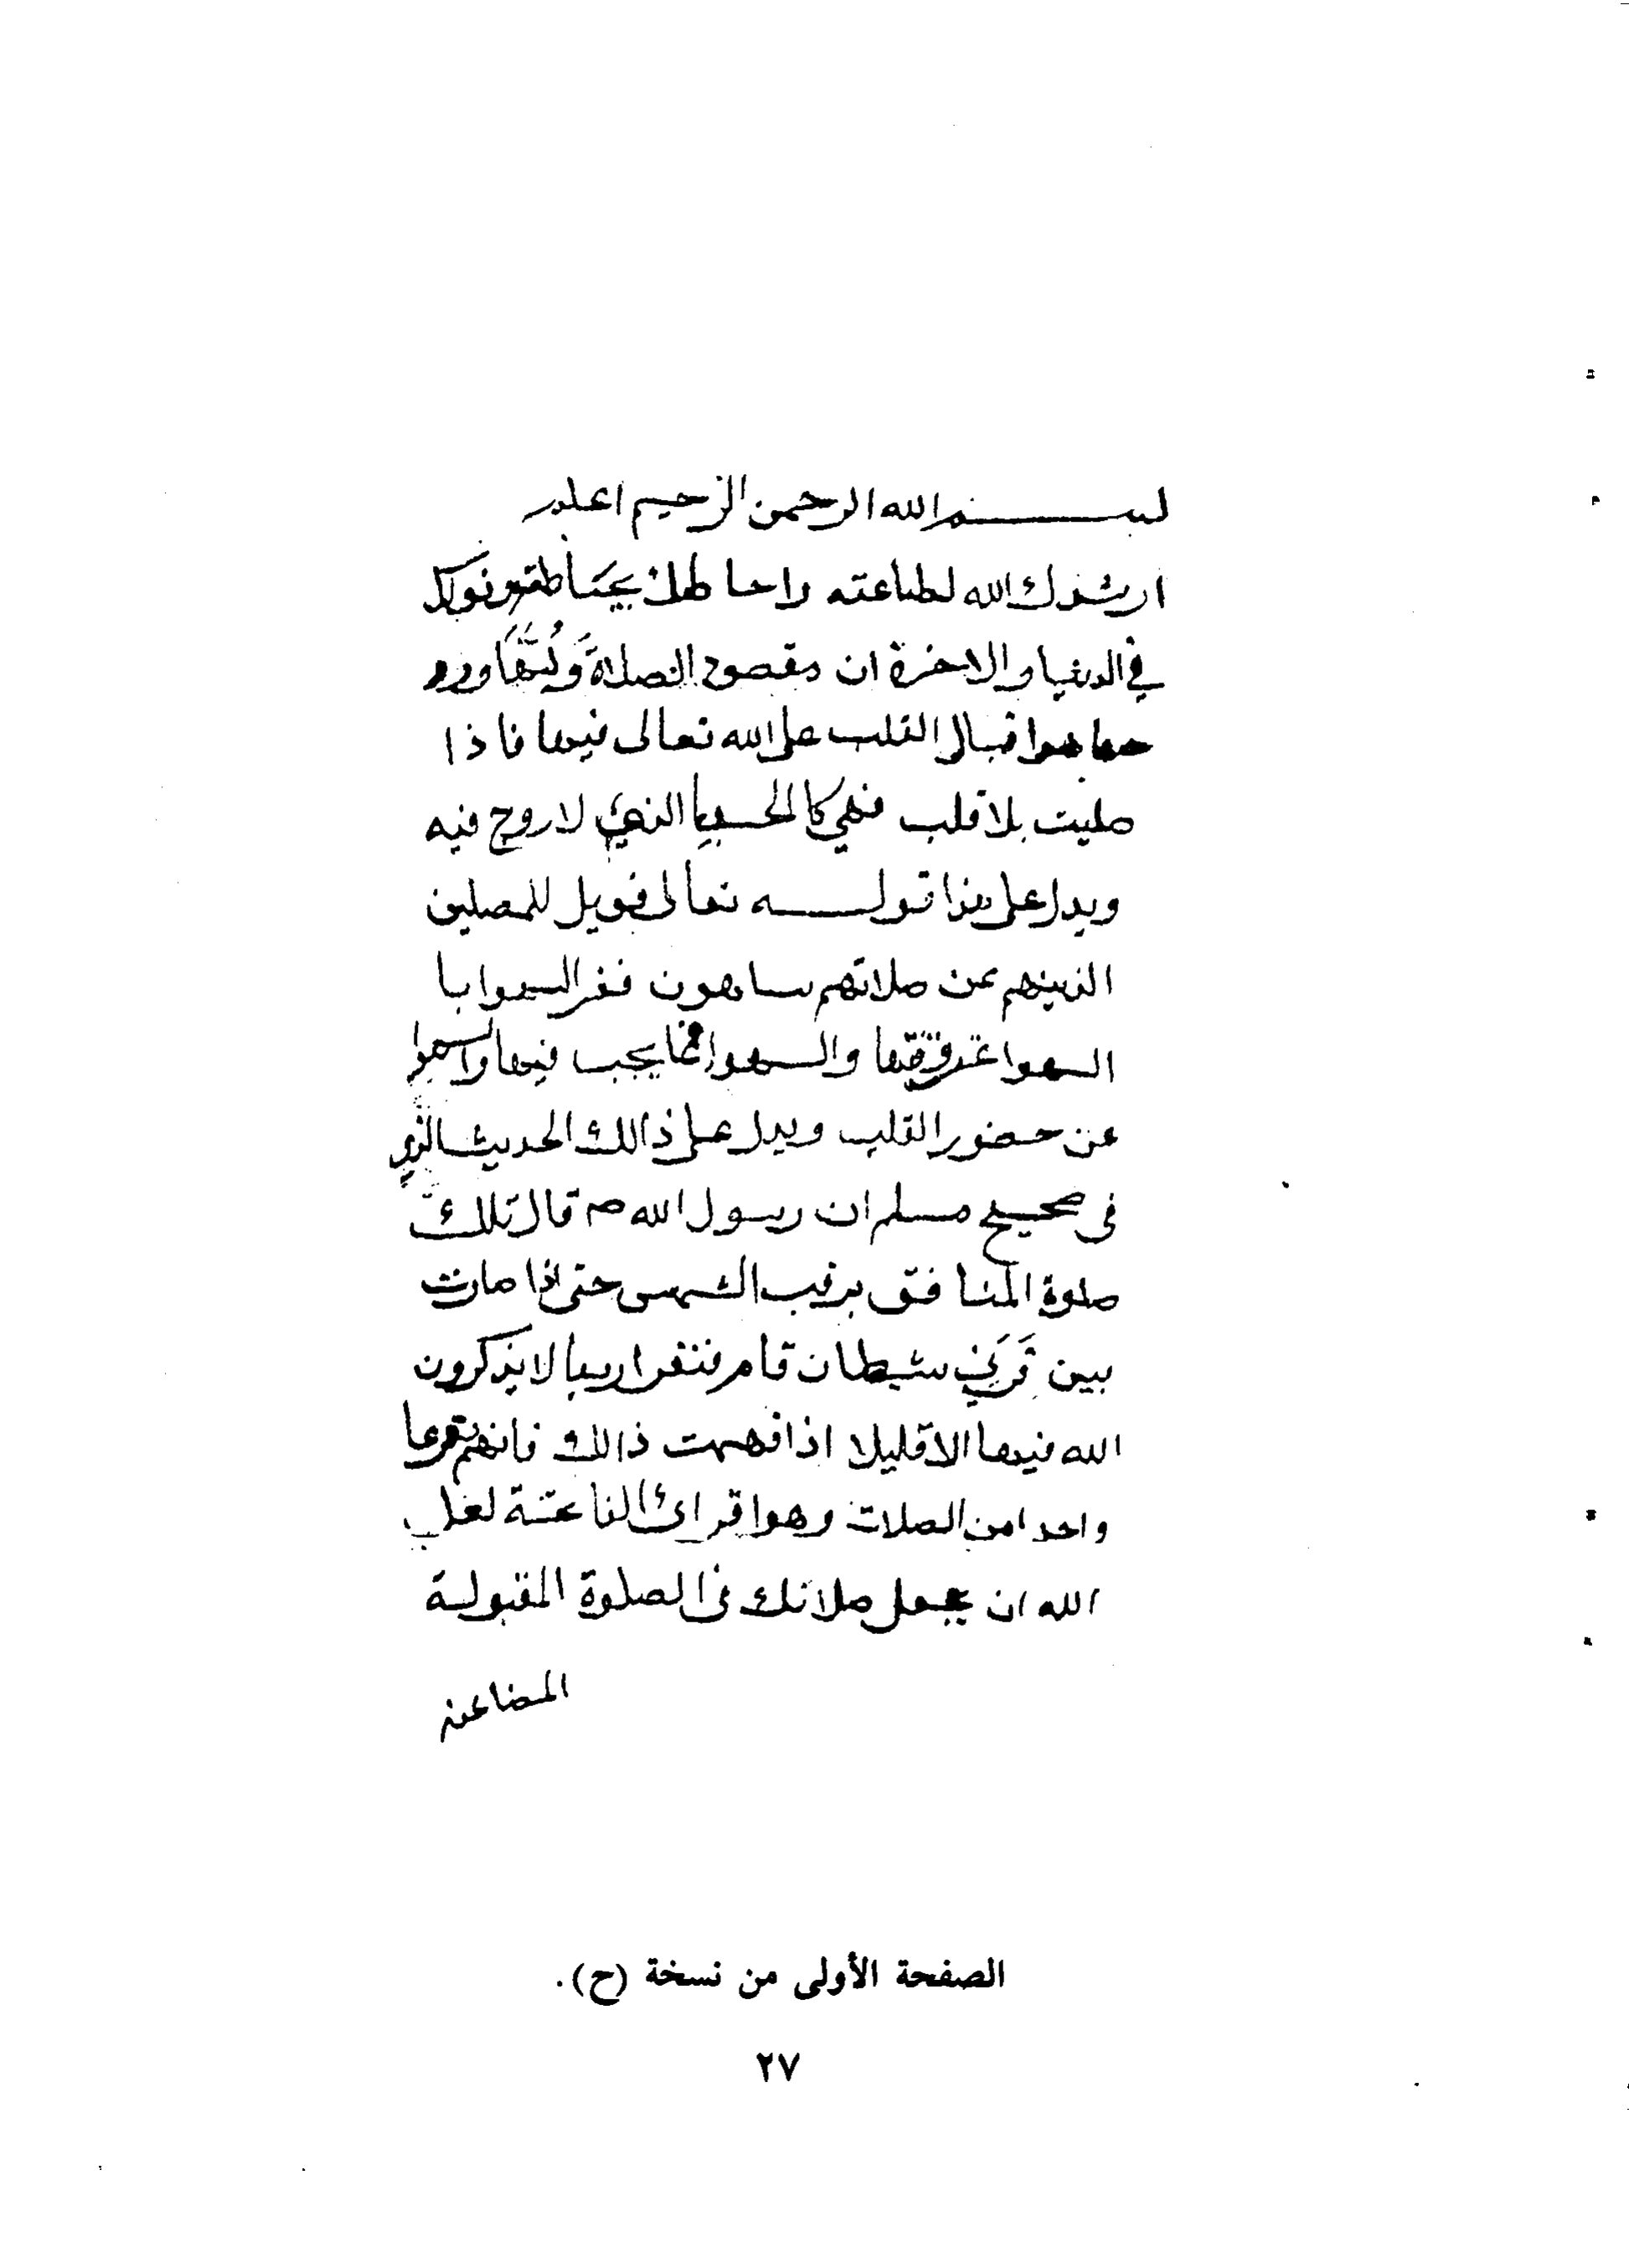 بسم الله الرحمن الرحيم اعلم
ارشدك الله لطاعته واحاطك بحياطته وتولاك
في الدنيا والاخرة ان مقصود الصلاة ولبها ورو
حها هوا قبال القلب على الله تعالى فيها فاذا
صليت بلا قلب فهي كا الجسد الذي لا روح فيه
ويدل على هذا قوله تعالى فويل للمصلين
الذينهم عن صلاتهم ساهون ففسر السهوا با
السهوا عن وقتها والسهوا عما يجب فيها والسهوا
عن حضور القلب ويدل على ذالك الحديث الذي
في صحيح مسلم ان رسول الله ص قال تلك
صلوة المنافق يرقب الشمس حتى اذا صارت
بين قرني شيطان قام فنقر اربعا لا يذكرون
الله فيها الا قليلا اذا فهمت ذالك فانهم نوعا
واحدا من الصلات وهوا قرائة الفاتحة لعل
الله ان يجعل صلاتك في الصلوة المقبولة
المضاعفة
الصفحة الأولى من نسخة (ح).
٢٧